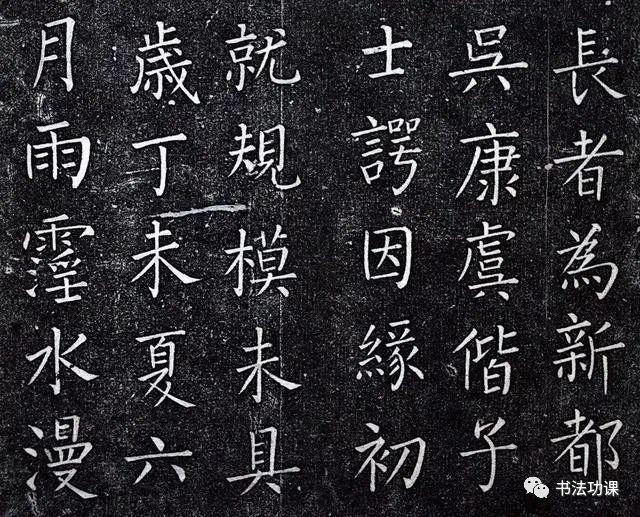 長者為新都
吳康虞偕子
士諤因緣初
就規模未具
歲丁未夏六
月雨霪水漫
书法功课